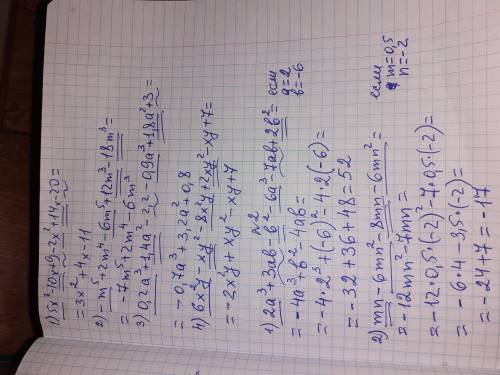 1) 5x²-10x+9-2x²+14x-20=
=3x²+4x-11
2) -m⁵+2m⁴-6m⁵+12m³-18m³=
=-7m⁵+2m⁴-6m³
3) 0,2a³+1,4a²-2,2-0,9a³+1,8a²+3=
=-0,7a³+3,2a²+0,8
4) 6x²y-xy²-8x²y+2xy²-xy+7=
=-2x²y+xy²-xy+7
№2
1) 2a³+3ab-b²-6a³-7ab+2b²= если a=2 b=-6
=-4a³+b²-4ab=
=-4·2³+(-6)²-4·2(-6)=
=-32+36+48=52
2) mn-6mn²-8mn-6mn²= если m=0,5 n=-2
=-12mn²-7mn=
=-12·0,5·(-2)²-7·0,5·(-2)=
=-6·4-3,5·(-2)=
=-24+7=-17